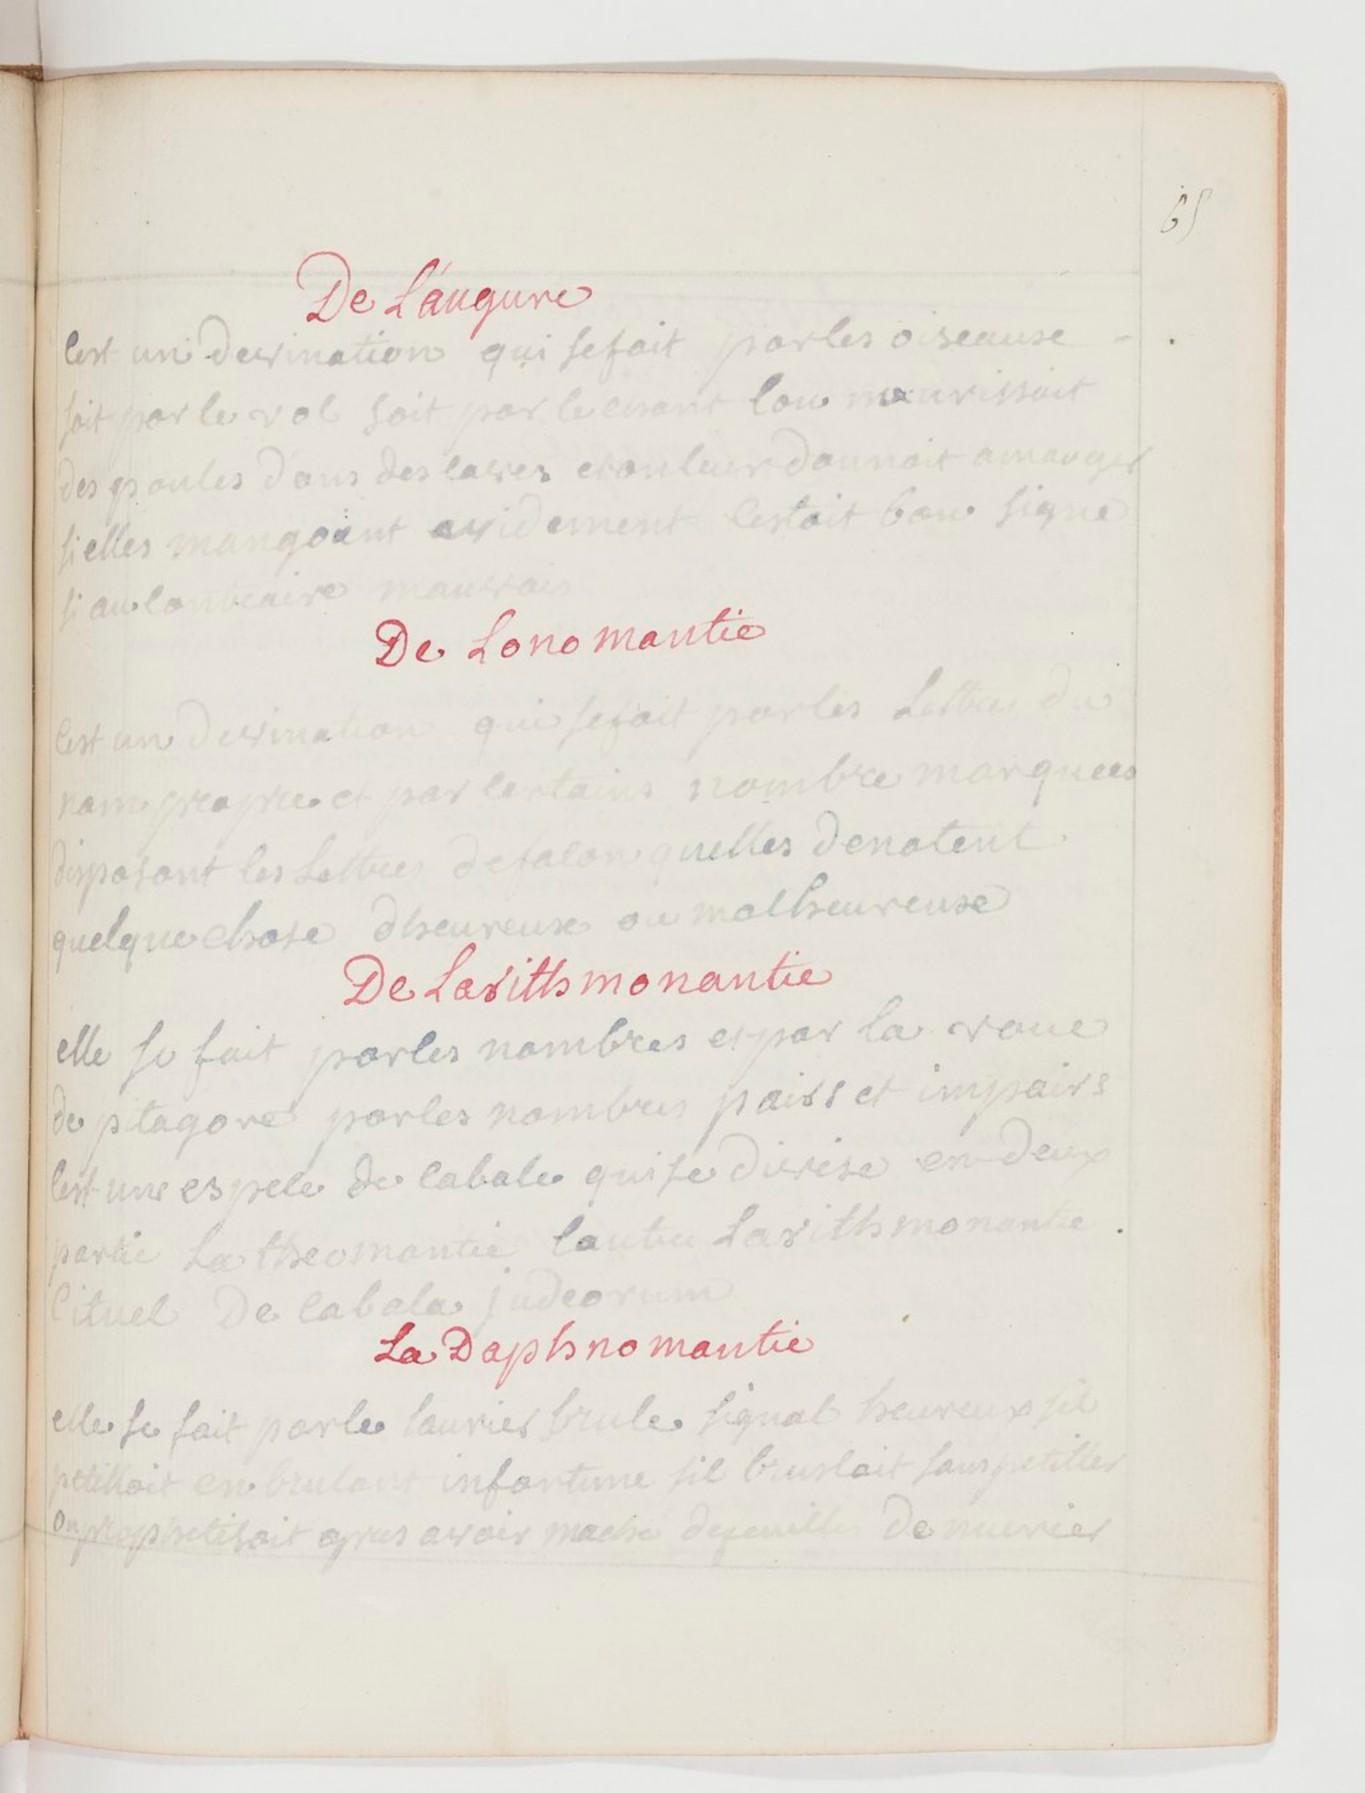 65
De L'augure
Cest un devination qui se fait par les oiseause -
soit par le vol soit par le chant lon nourissoit
des poules dans des caves et on leur donnoit a manger
si elles mangoient avidement Cestoit bon signe
si au Contraire mauvais
De Lonomantie
Cest un devination qui se fait par les Lettres du
nom propre et par Certains nombre marquees
disposant les Lettres de facon quelles denotent
quelque chose dheureuse ou malheureuse
De Larithmonantie
elle se fait par les nombres et par la roue
de ptagore par les nombres pairs et impairs
Cest une espece de Cabale qui se divise en deux
partie La theomantie Lautre Larithmonantie .
De Cabala judeorum
La Daphnomantie
elle se fait par le laurier brule signal heureux sil
petilloit en brulant infortune sil brusloit sans petiller
on prophetisoit apres avoir mache de feuilles de murier